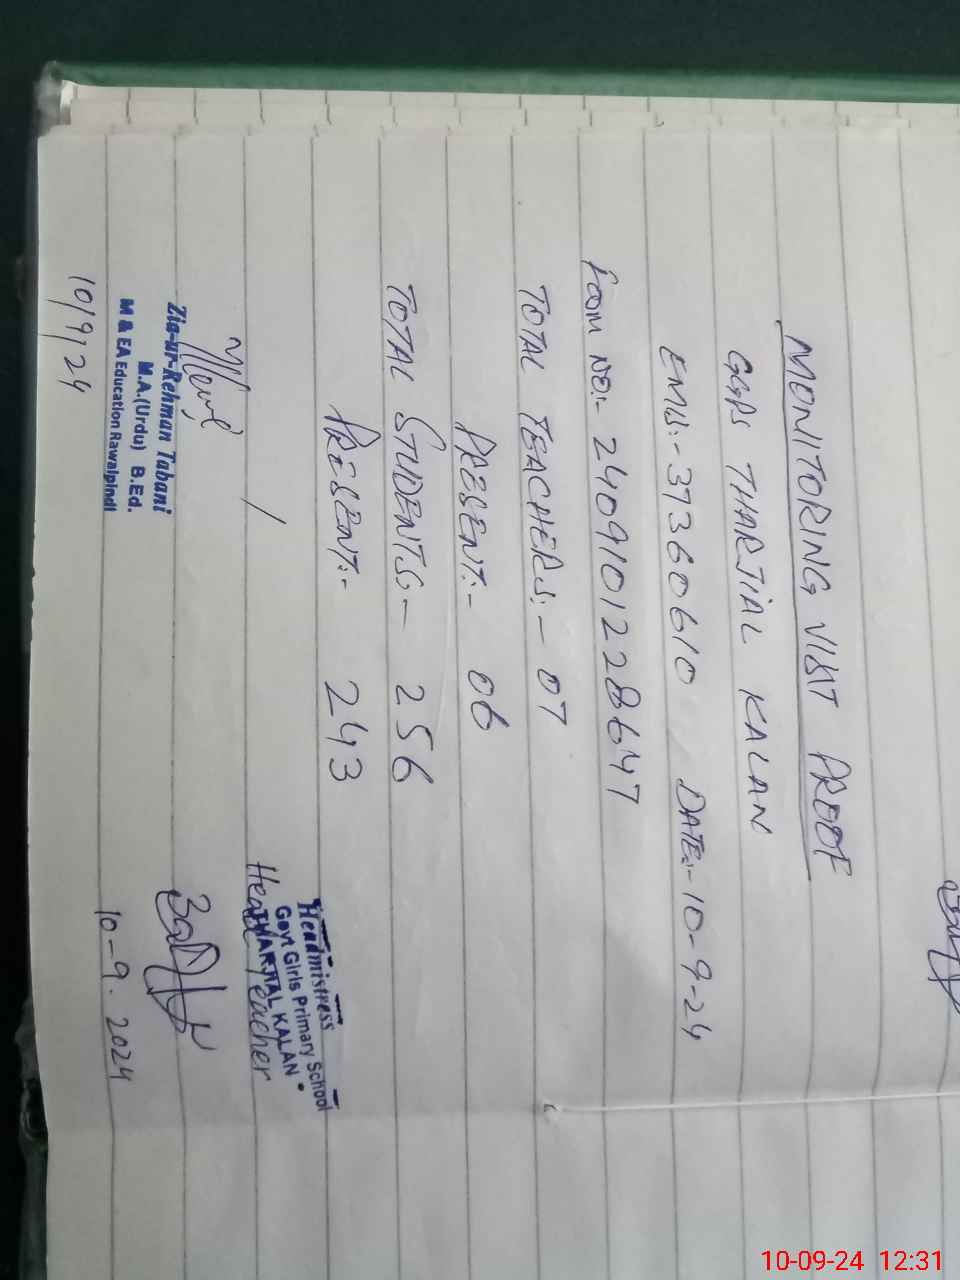 MONITORING VISIT PROOF
GGPS THARJIAL KALAN
EMIS:- 37360610 DATE:- 10-9-24
FORM NO:- 2409101228647
TOTAL TEACHERS:- 07
PRESENT:- 06
TOTAL STUDENTS:- 256
PRESENT:- 243
Headmistress
Govt Girls Primary School
THARJIAL KALAN
Head Teacher
Zia-ur-Rehman Tabani
M.A.(Urdu) B.Ed.
M & EA Education Rawalpindi
10/9/24
10-9.2024
10-09-24 12:31